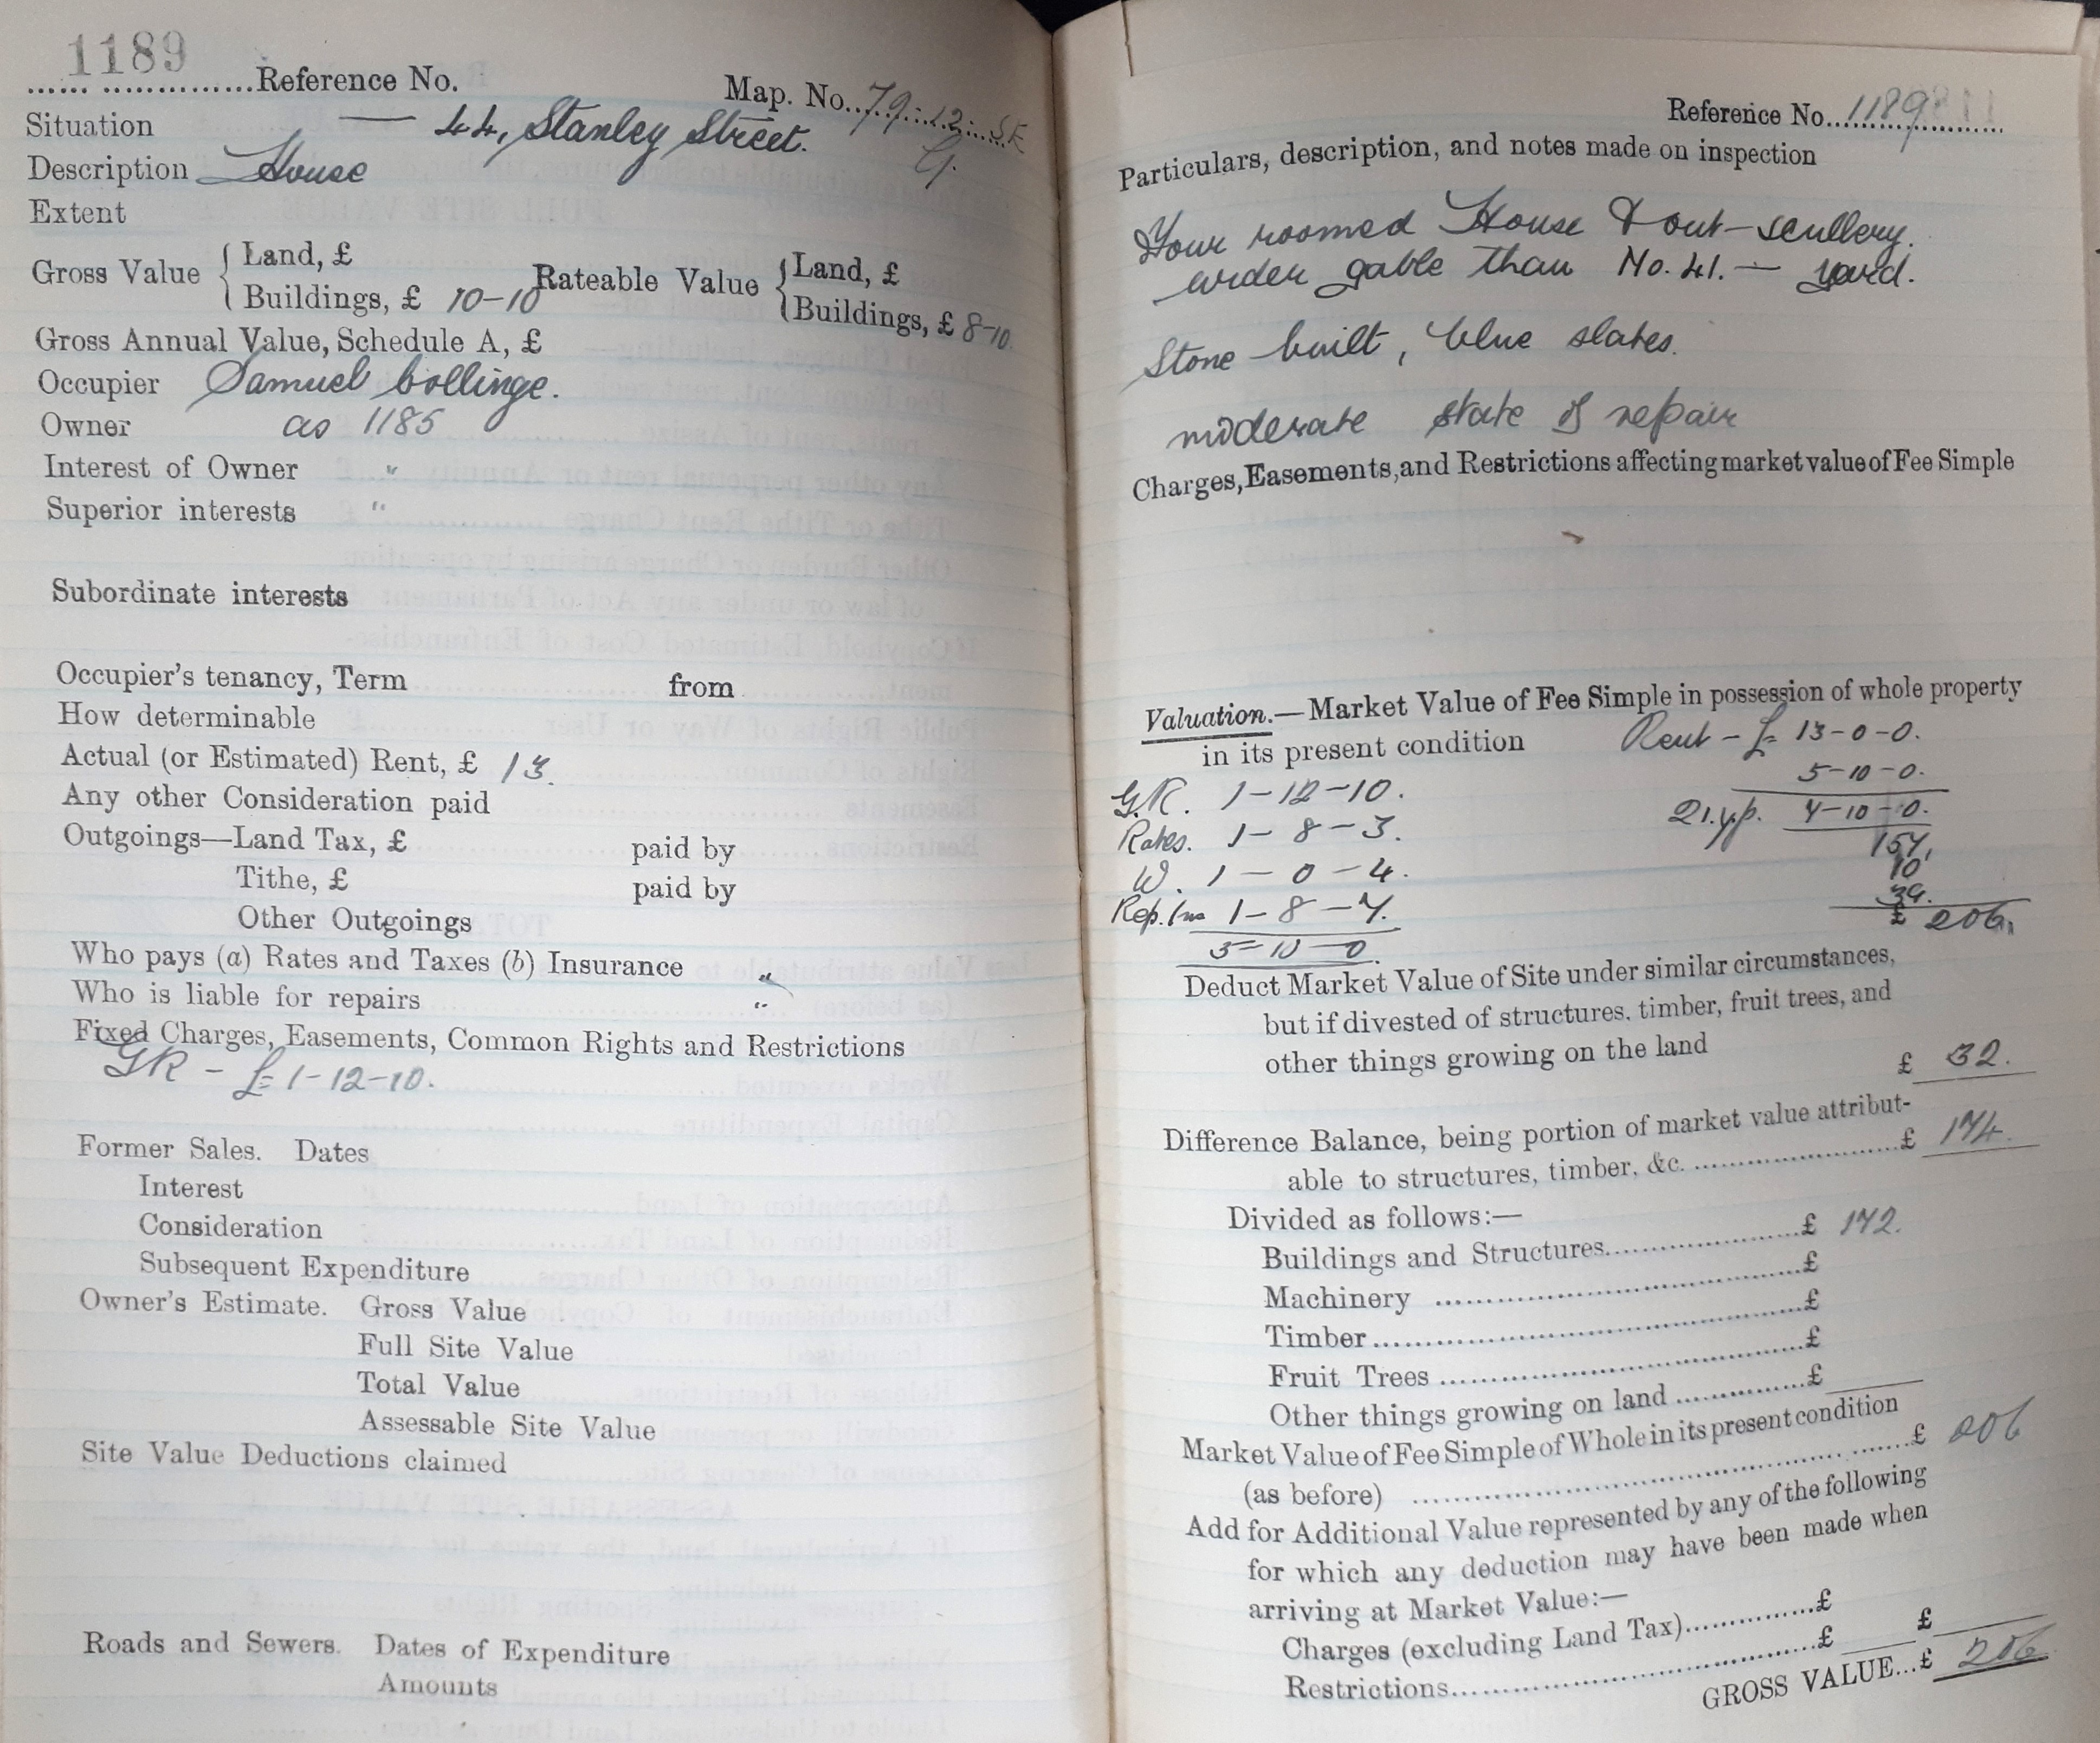 1189
Reference No.
Map. No. 79.12. SE
G.
Situation — 44, Stanley Street.
Description House
Extent
Gross Value { Land, £
Buildings, £ 10-10
Rateable Value { Land, £
Buildings, £ 8-10.
Gross Annual Value, Schedule A, £
Occupier Samuel Collinge.
Owner as 1185
Interest of Owner "
Superior interests "
Subordinate interests
Occupier's tenancy, Term from
How determinable
Actual (or Estimated) Rent, £ 13.
Any other Consideration paid
Outgoings—Land Tax, £ paid by
Tithe, £ paid by
Other Outgoings
Who pays (a) Rates and Taxes (b) Insurance "
Who is liable for repairs "
Fixed Charges, Easements, Common Rights and Restrictions
GR - £ 1-12-10.
Former Sales. Dates
Interest
Consideration
Subsequent Expenditure
Owner's Estimate. Gross Value
Full Site Value
Total Value
Assessable Site Value
Site Value Deductions claimed
Roads and Sewers. Dates of Expenditure
Amounts
Reference No. 1189
Particulars, description, and notes made on inspection
Four roomed House & out-scullery.
wider gable than No. 41. — yard.
Stone built, blue slates.
moderate state of repair
Charges, Easements, and Restrictions affecting market value of Fee Simple
Valuation.—Market Value of Fee Simple in possession of whole property
in its present condition
Rent - £ 13-0-0.
5-10-0.
21.y.p. 7-10-0.
157,
10
39.
£ 206.
G.R. 1-12-10.
Rates. 1-8-3.
W. 1-0-4.
Rep. Ins 1-8-7.
5-10-0.
Deduct Market Value of Site under similar circumstances,
but if divested of structures, timber, fruit trees, and
other things growing on the land £ 32.
Difference Balance, being portion of market value attribut-
able to structures, timber, &c. £ 174.
Divided as follows:—
Buildings and Structures £ 172.
Machinery £
Timber £
Fruit Trees £
Other things growing on land £
Market Value of Fee Simple of Whole in its present condition
(as before) £ 206
Add for Additional Value represented by any of the following
for which any deduction may have been made when
arriving at Market Value:—
Charges (excluding Land Tax) £
Restrictions £ £
GROSS VALUE...£ 206